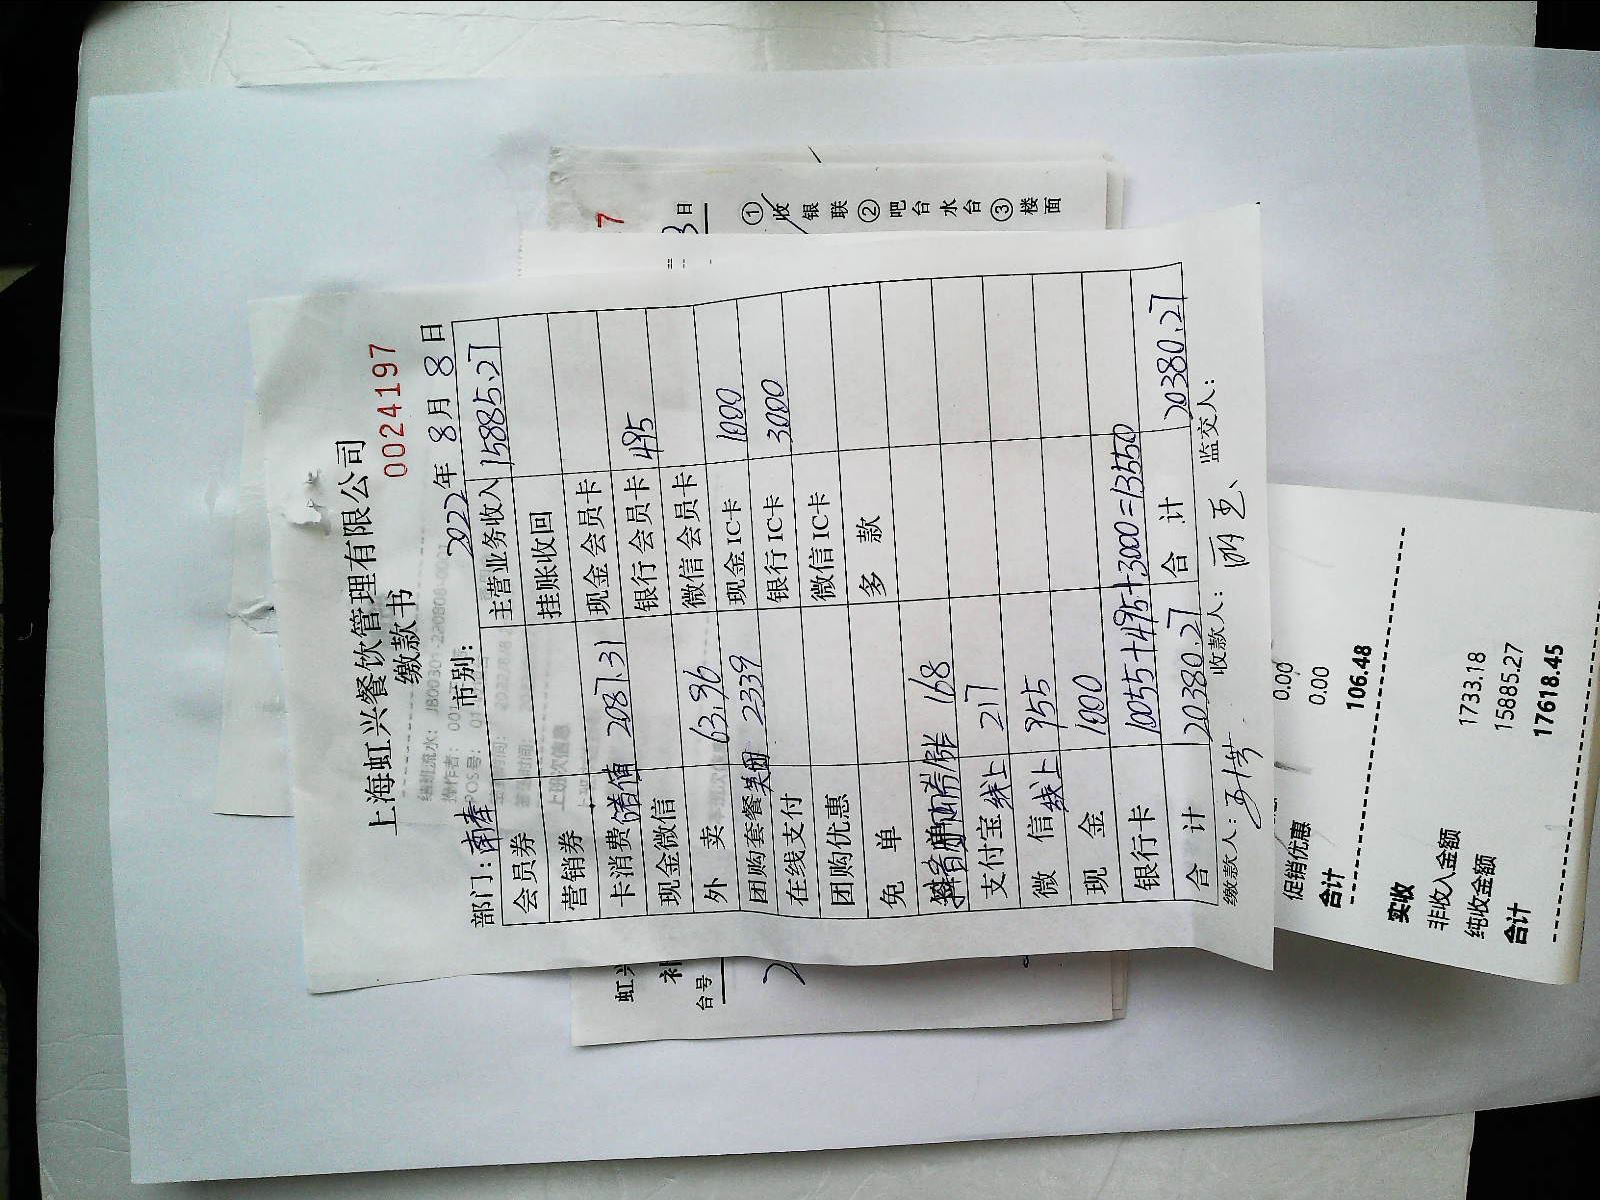 上海虹兴餐饮管理有限公司
缴款书
0024197
部门：南奉 市别： 2022年8月8日
会员券 主营业务收入 15885.27
营销券 挂账收回
卡消费储值 2087.31 现金会员卡
现金微信 银行会员卡 495
外 卖 63.96 微信会员卡
团购套餐美团 2339 现金IC卡 1000
在线支付 银行IC卡 3000
团购优惠 微信IC卡
免 单 多 款
168
支付宝线上 217
微 信线上 955
现 金 1000
银行卡 10055+495+3000=13550
合 计 20380.27 合 计 20380.27
缴款人： 收款人： 监交人：
7
日
①收银联②吧台水台③楼面
虹兴
补
台号
0.00
0.00
促销优惠
合计 106.48
实收
非收入金额 1733.18
纯收金额 15885.27
合计 17618.45